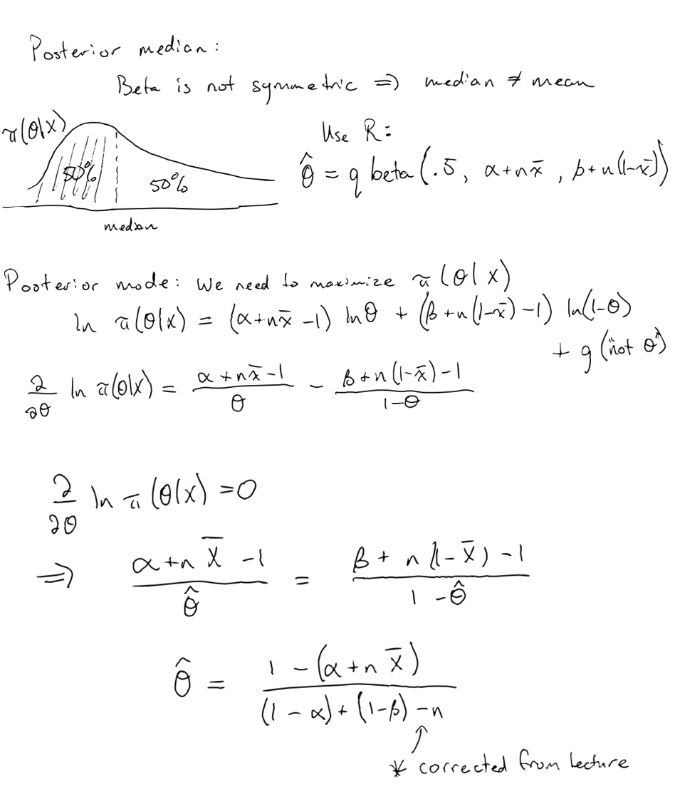 Posterior median:
Beta is not symmetric ⇒ median ≠ mean
π(θ|x)
50%
50%
median
Use R:
θ̂ = qbeta(.5, α+nx̄, β+n(1-x̄))
Posterior mode: We need to maximize π(θ|x)
ln π(θ|x) = (α+nx̄-1) lnθ + (β+n(1-x̄)-1) ln(1-θ)
+ g("not θ")
∂/∂θ ln π(θ|x) = (α+nx̄-1)/θ - (β+n(1-x̄)-1)/(1-θ)
∂/∂θ ln π(θ|x) = 0
⇒ (α+nX̄-1)/θ̂ = (β+n(1-X̄)-1)/(1-θ̂)
θ̂ = (1-(α+nX̄))/((1-α)+(1-β)-n)
↑
* corrected from lecture